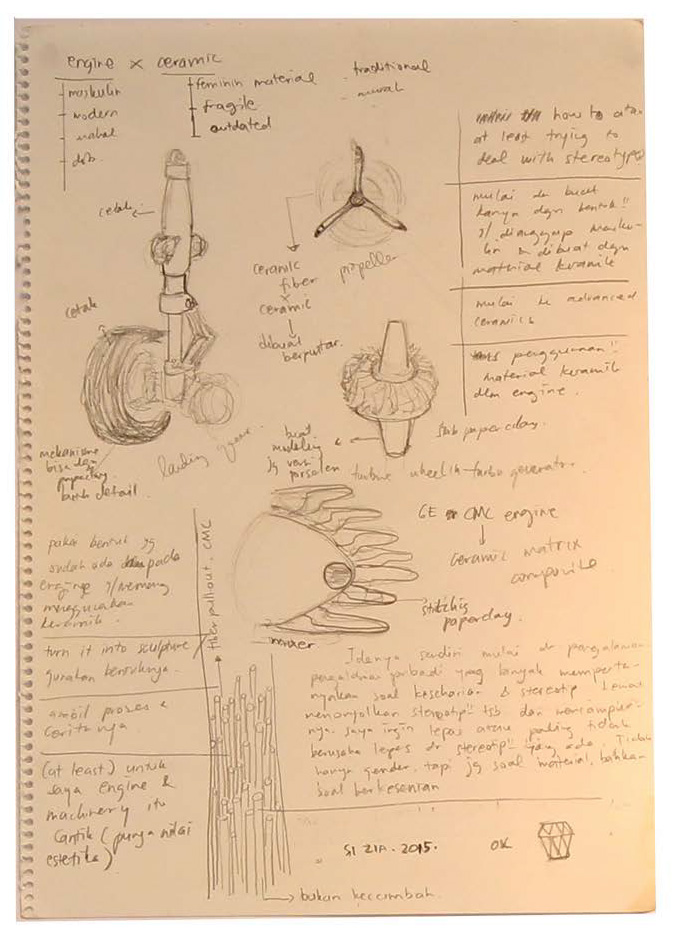 engine x ceramic
maskulin
modern
mahal
feminin material
fragile
outdated
traditional
how to
at least trying to
deal with stereotypes
mulai dr buat
karya dgn bentuk²
yg dianggap masku-
lin & dibuat dgn
material keramik
mulai ke advanced
ceramics
penggunaan²
material keramik
dlm engine.
cetak
propeller
ceramic
fiber
x
ceramic
dibuat
berputar.
cetak
mekanisme
bisa dgn
paperclay
butuh detail.
landing gear.
buat
modeling
yg versi
porselen
slab paperclay.
turbine wheel in turbo generator.
GE CMC engine
ceramic matrix
composite.
stitching
paperclay.
pakai bentuk yg
sudah ada pada
engine yg memang
menggunakan
keramik.
turn it into sculpture
gunakan bentuknya.
ambil proses &
ceritanya
(at least) untuk
saya engine &
machinery itu
cantik (punya nilai
estetika)
fiber pull-out, CMC
Idenya sendiri mulai dr pengalaman
pengalaman pribadi yang banyak memperta-
nyakan soal keseharian & stereotip. Lewat
menonjolkan stereotip² tsb dan mencampurkan-
nya. saya ingin lepas atau paling tidak
berusaha lepas dr stereotip² yang ada. Tidak
hanya gender, tapi jg soal material, bahkan
soal berkesenian
SI ZIA. 2015.
OK
bukan kecambah.